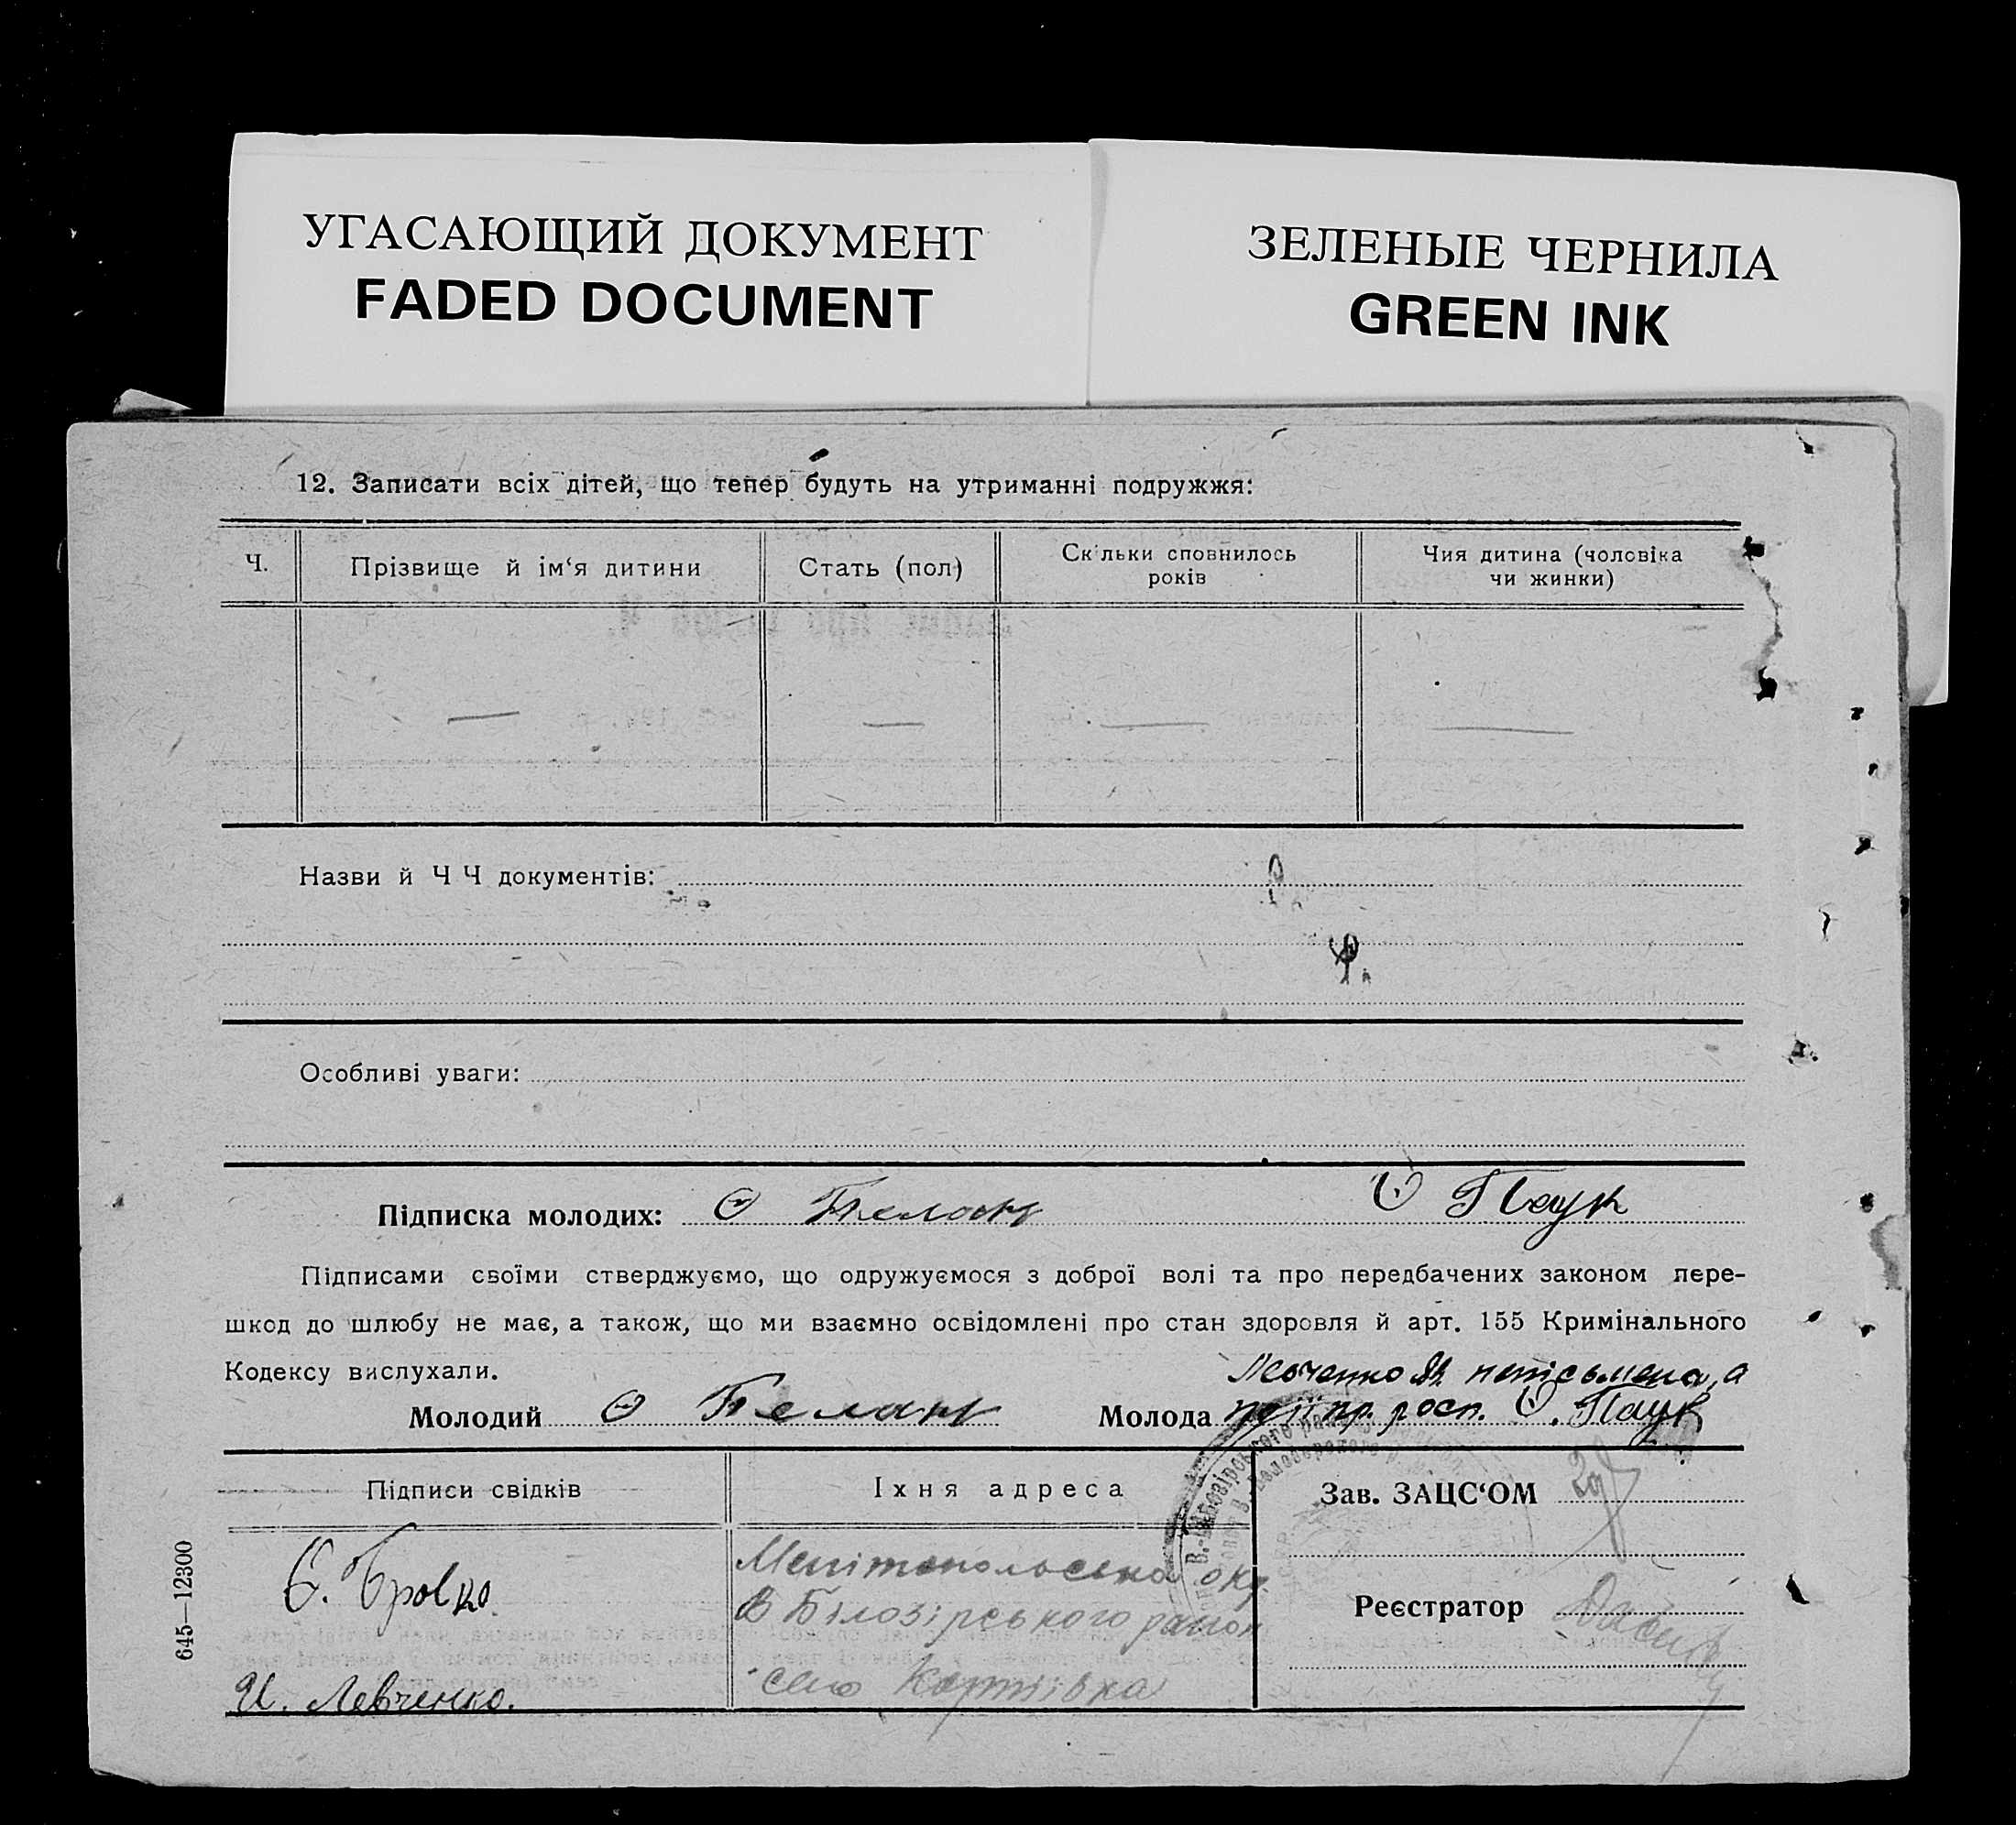 УГАСАЮЩИЙ ДОКУМЕНТ
FADED DOCUMENT
ЗЕЛЕНЫЕ ЧЕРНИЛА
GREEN INK
12. Записати всіх дітей, що тепер будуть на утриманні подружжя:
Ч.
Прізвище й ім‘я дитини
Стать (пол)
Скільки сповнилось
років
Чия дитина (чоловіка
чи жинки)
— — — —
Назви й Ч Ч документів:
Особливі уваги:
Підписка молодих: О Паук
Підписами своїми стверджуємо, що одружуємося з доброї волі та про передбачених законом пере-
шкод до шлюбу не має, а також, що ми взаємно освідомлені про стан здоровля й арт. 155 Кримінального
Кодексу вислухали.
Левченко неписьмена, а
Молодий
Молода пр. росп. О. Паук
Підписи свідків
Їхня адреса
Зав. ЗАЦС‘ОМ
Є. Бровко.
Мелітопольська окр.
В Білозірського район
Реєстратор
И. Левченко.
село
645—12300